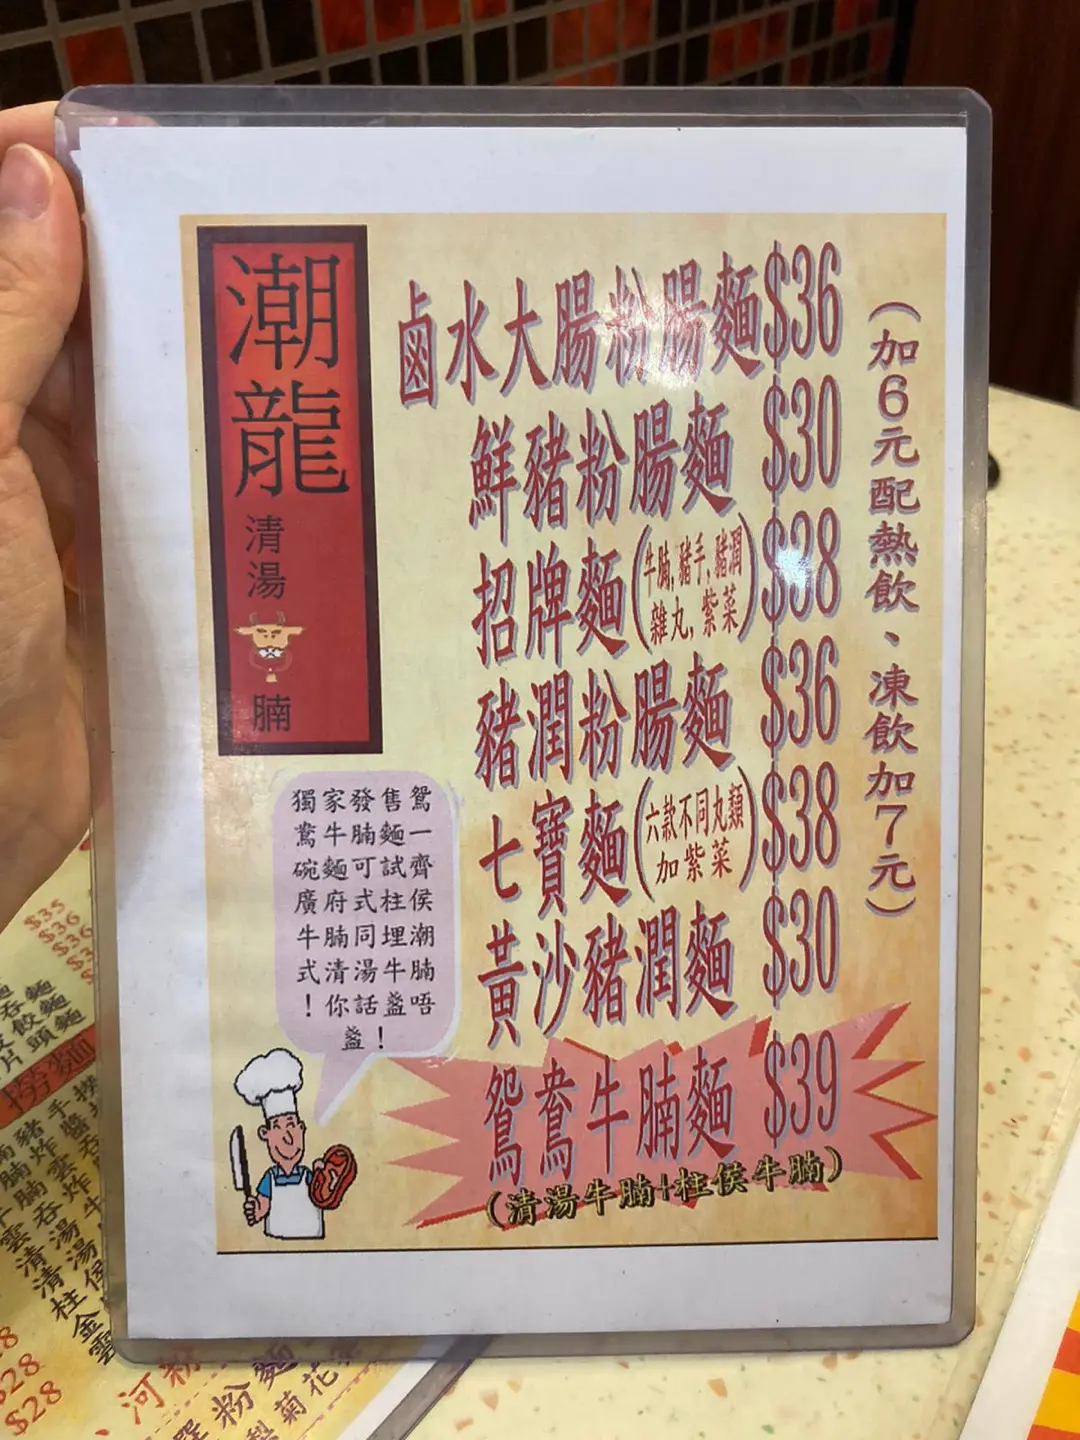 潮龍
清湯
腩
鹵水大腸粉腸麵$36
鮮豬粉腸麵 $30
招牌麵(牛腩,豬手,豬潤
雜丸,紫菜) $38
豬潤粉腸麵 $36
七寶麵(六款不同丸類
加紫菜) $38
黃沙豬潤麵 $30
鴛鴦牛腩麵 $39
(清湯牛腩+柱侯牛腩)
(加6元配熱飲、凍飲加7元)
獨家發售鴛
鴦牛腩麵一
碗麵可試齊
廣府式柱侯
牛腩同埋潮
式清湯牛腩
!你話盞唔
盞!
$35
$36
$28
$28
河粉
粉麵
菊花